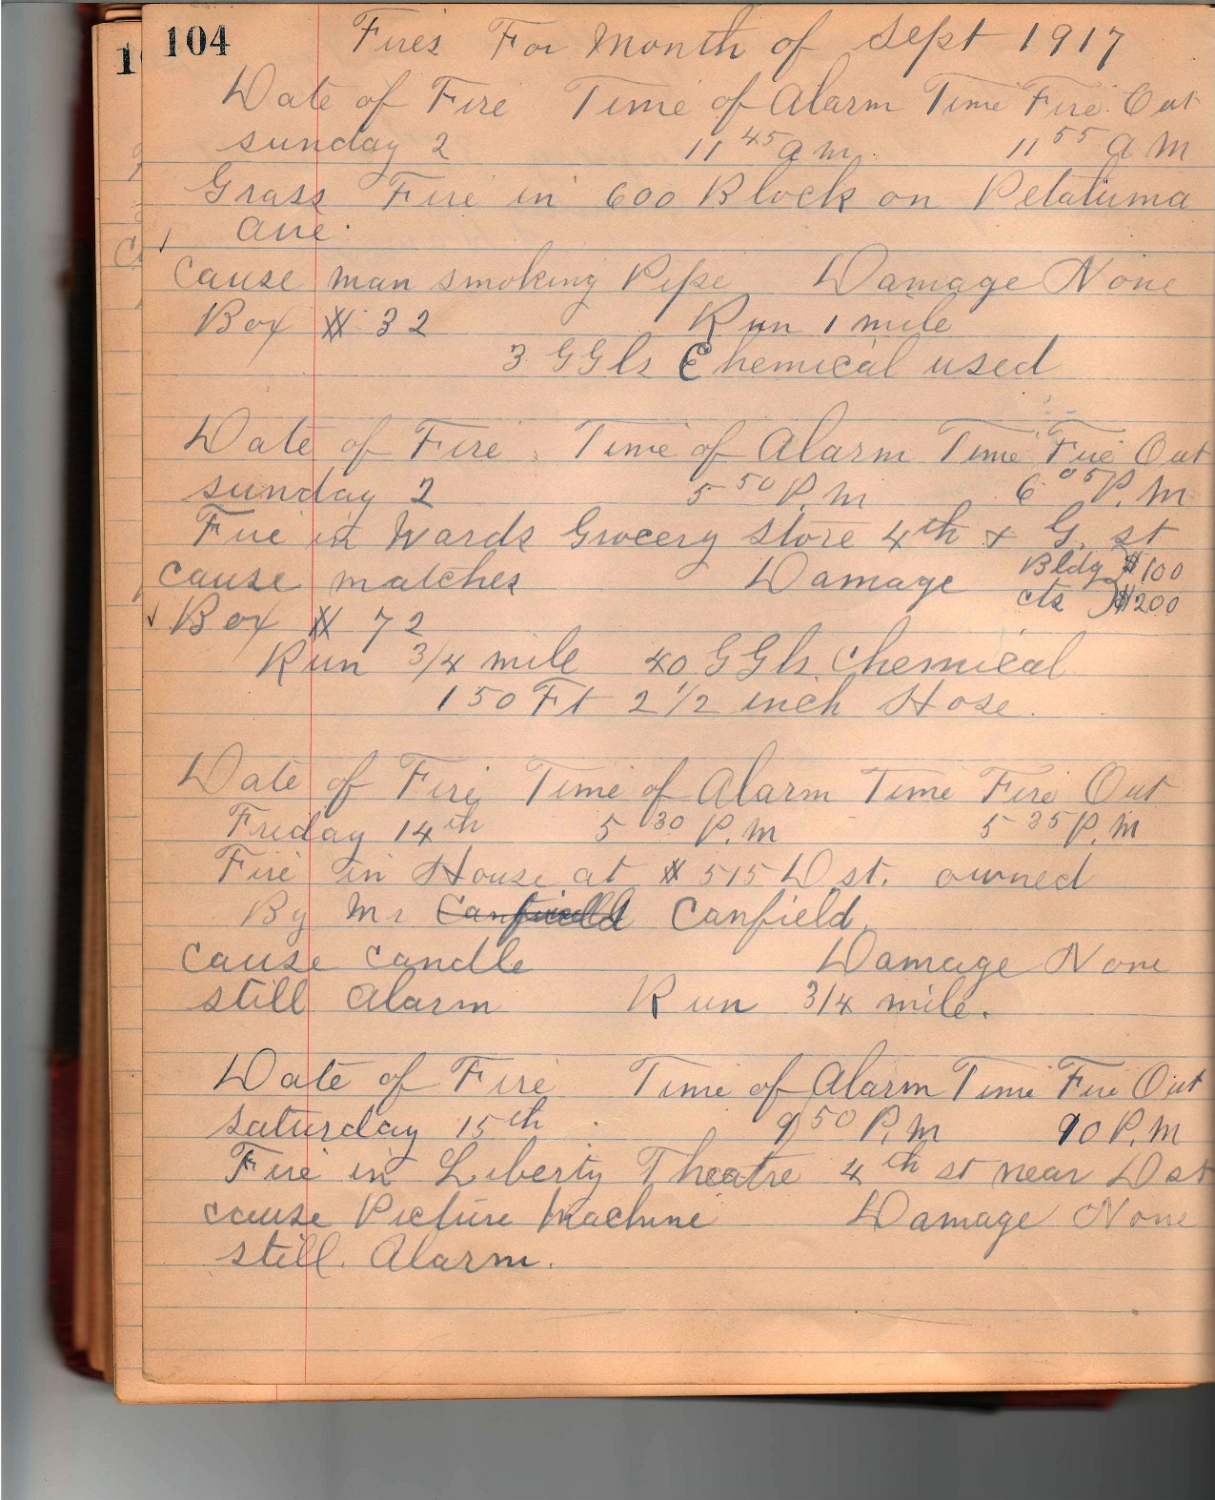 104 Fires For Month of Sept 1917
Date of Fire Time of Alarm Time Fire Out
sunday 2 11 45 am. 11 55 a M
Grass Fire in 600 Block on Petaluma
ave.
Cause man smoking Pipe Damage None
Box # 32 Run 1 mile
3 GGls Chemical used
Date of Fire Time of Alarm Time Fire Out
sunday 2 5 50 P.M 6 05 P.M
Fire in Wards Grocery store 4th + G. st
cause matches Damage Bldg $100
cts $200
Box # 72
Run 3/4 mile 40 GGls. Chemical
150 Ft 2 1/2 inch Hose.
Date of Fire Time of Alarm Time Fire Out
Friday 14th 5 30 P.M 5 35 P.M
Fire in House at # 515 D st. owned
By Mr Canfield Canfield.
cause candle Damage None
still Alarm Run 3/4 mile.
Date of Fire Time of Alarm Time Fire Out
saturday 15th 9 50 P.M 90 P.M
Fire in Liberty Theatre 4th st near D st
cause Picture Machine Damage None
still. Alarm.